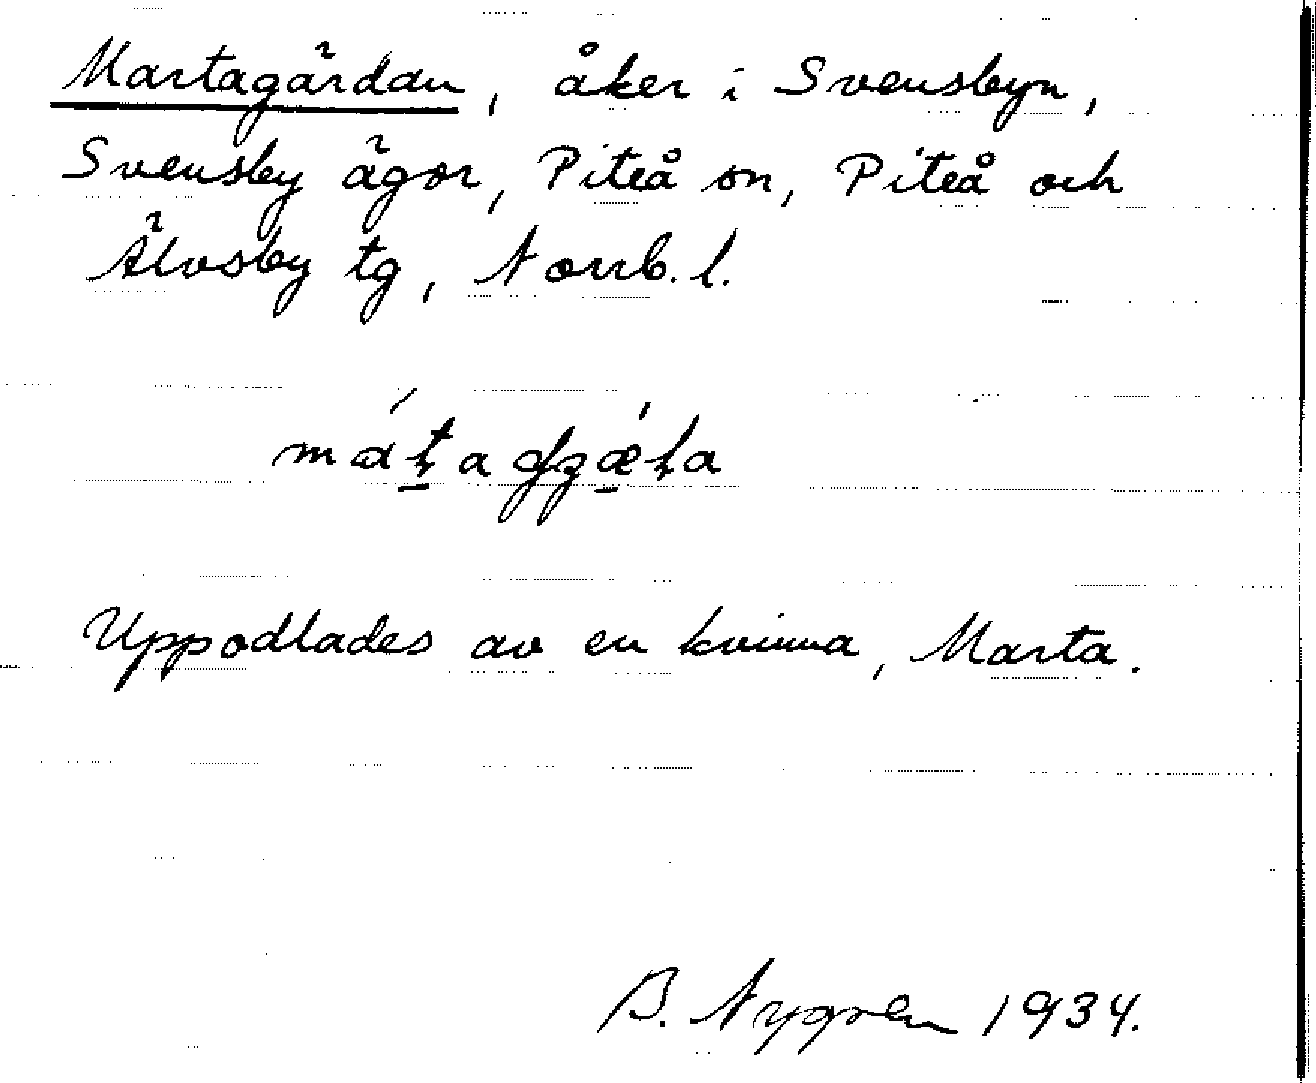 Martagärdan, åker i Svensbyn,
Svensby ägor, Piteå sn, Piteå och
Älvsby tg, Norrb. l.
Uppodlades av en kvinna, Marta.
B. Nygren 1934.